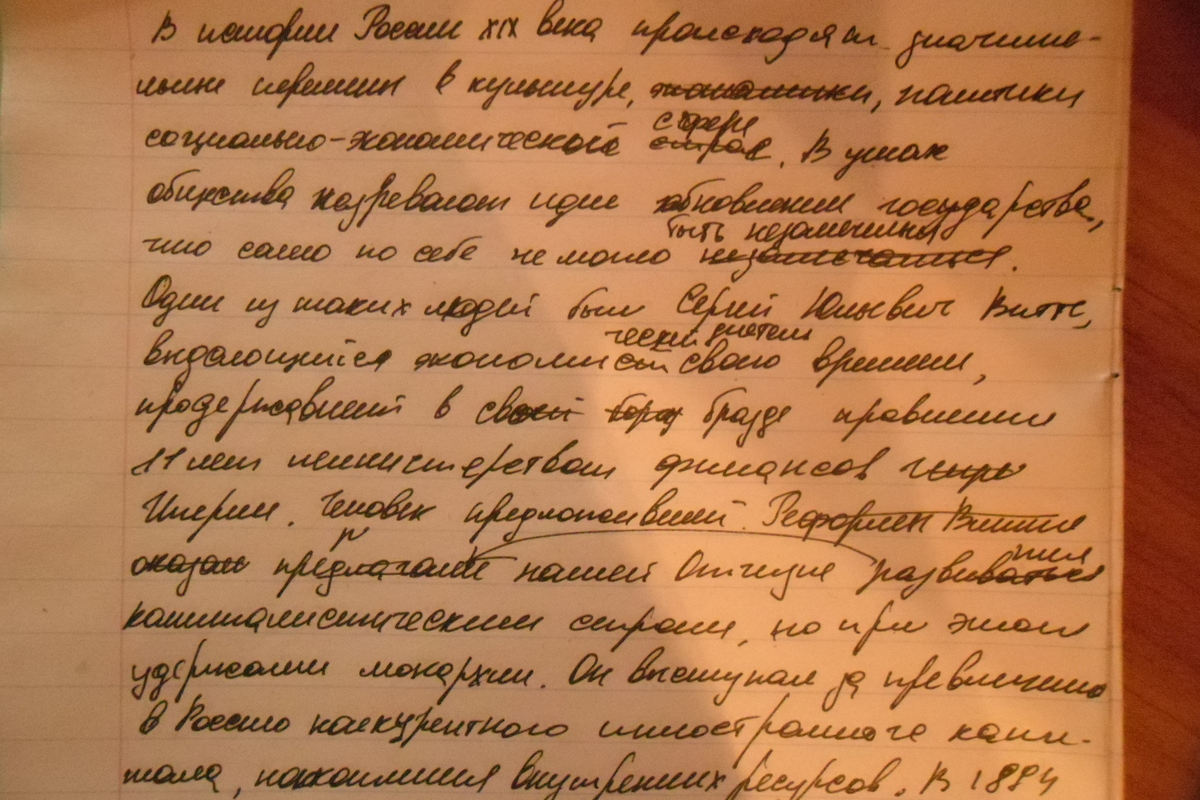 В истории России XIX века происходят значите-
льные перемены в культуре, экономики, политики
социально-экономической сфере. В умах
общества назревают идеи обновления государства,
что само по себе не могло быть незамеченым.
Один из таких людей был Сергей Юльевич Витте,
выдающийся экономический деятель своего времени,
продержавший в своей бразде правления
11 лет министерством финансов
Империи. Человек предложивший. Реформы Витте
оказал предлагали нашей Отчизне развиваться
капиталистическим строем, но при этом
удержании монархии. Он выступал за превлечению
в Россию конкурентного иностранного капи-
тала, накопления внутренних ресурсов. В 1884